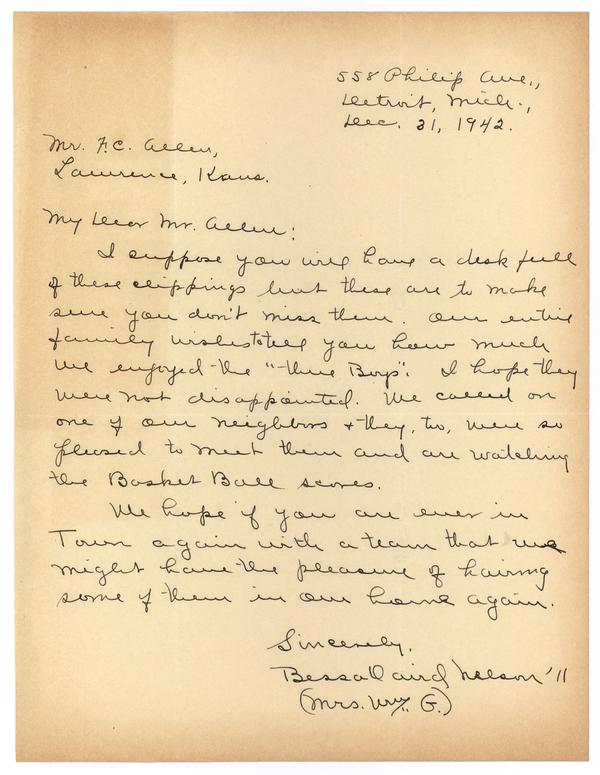 558 Philip Ave.,
Detroit, Mich.,
Dec. 31, 1942.
Mr. F.C. Allen,
Lawrence, Kans.
My Dear Mr. Allen:
I suppose you will have a desk full
of these clippings but these are to make
sure you don't miss them. Our entire
family wishes to tell you how much
we enjoyed the "three Boys". I hope they
were not disappointed. We called on
one of our neighbors & they, to, were so
pleased to meet them and are watching
the Basket Ball scores.
We hope if you are ever in
Town again with a team that we
might have the pleasure of having
some of them in our home again.
Sincerely,
Bessa Laird Nelson '11
(Mrs. Wm. G.)